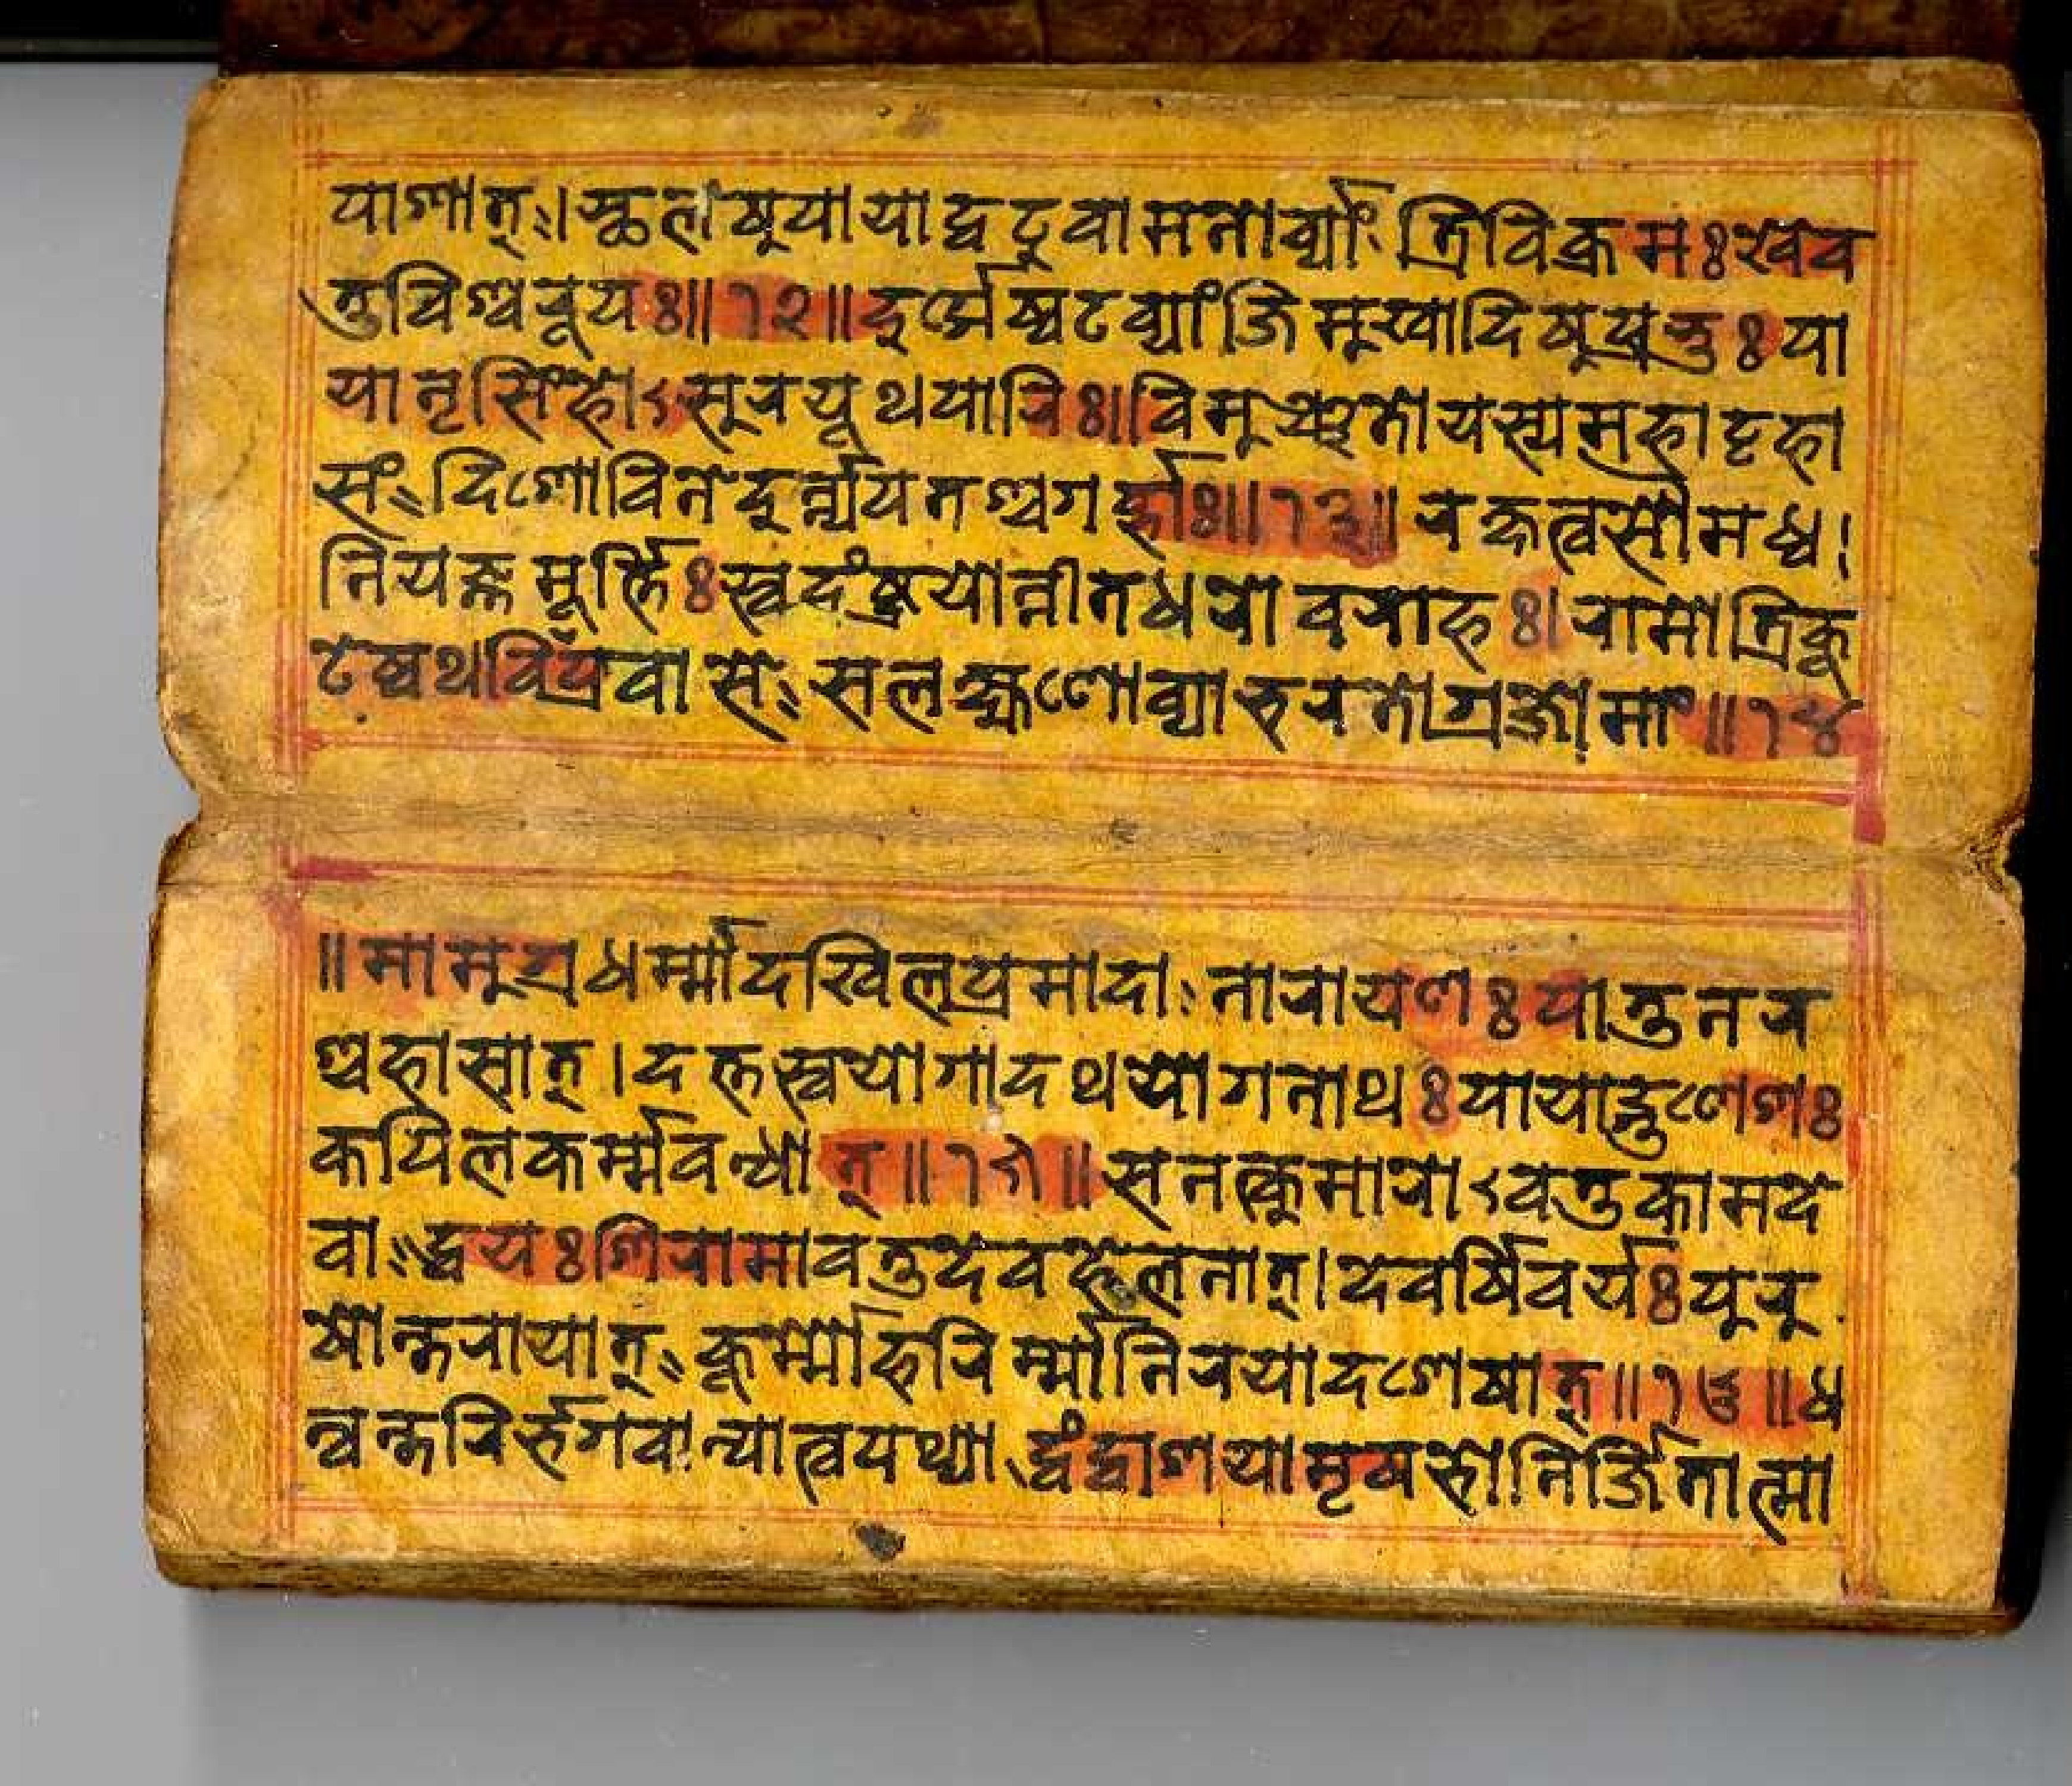 पाशात् । स्थलेषु पायाद्वटुवामनोव्यां त्रिविक्रमः खेव
तु विश्वरूपः ॥ १२ ॥ दुर्ग्गेष्वटव्यांजिमुखादिषु प्रभुः पा
यान्नृसिंहोऽसुरयूथपारिः । विमुञ्चतो यस्य महाट्टहा
सं दिशो विनेदुर्न्न्यपतंश्च गर्भाः ॥ १३ ॥ रक्षत्वसौ माध्व
नि यज्ञमूर्त्तिः स्वदंष्ट्रयोन्नीतधरो वराहः । रामोत्रिकू
टेष्वथ विप्रवासे सलक्ष्मणोव्याद्भरताग्रजो मां ॥ १४
॥ मामुग्रधर्म्मादखिलप्रमादा नारायणः पातु नर
श्च हासात् । दत्तस्त्वयोगादथ योगनाथः पायाद्गुणेशः
कपिल कर्म्मबन्धात् ॥ १५ ॥ सनत्कुमारोऽवतु कामदे
वाद्धयःशिरा मावतु देवहेलनात् । देवर्षिवर्यः पुरु
षान्तरायात् कूर्म्मो हरिर्म्मां निरयादशेषात् ॥ १६ ॥ ध
न्वन्तरिर्भगवान्पात्वपथ्या द्वंद्वाद्भयामृषभो निर्जितात्मा